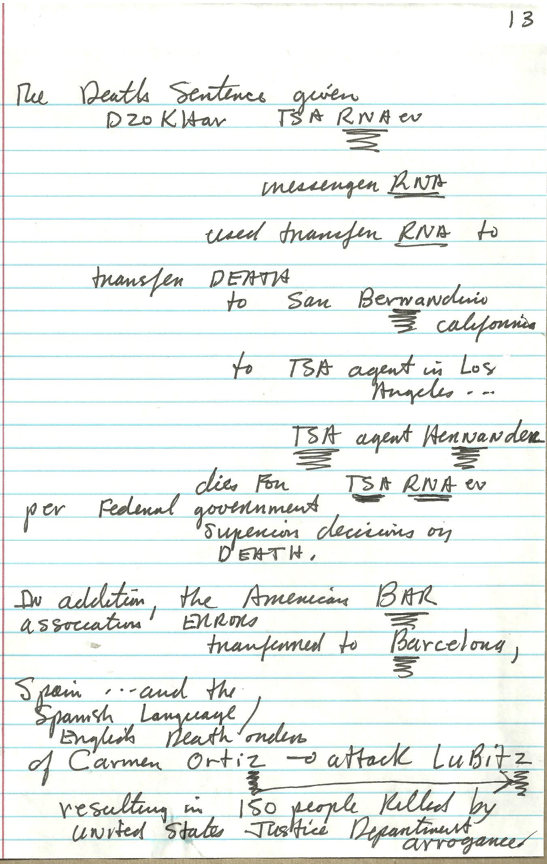 13
The Death Sentence given
DZOKHar TSA RNAev
messenger RNA
used transfer RNA to
transfer DEATH
to San Bernandino
california
to TSA agent in Los
Angeles ...
TSA agent Hernandez
dies For TSA RNA ev
per Federal government
superior decisions on
DEATH.
In addition, the American BAR
association ERRORS
tranferred to Barcelona,
Spain ... and the
Spanish Language/
English Death orders
of Carmen Ortiz → attack LuBitz
resulting in 150 people killed by
United States Justice Department
arrogance